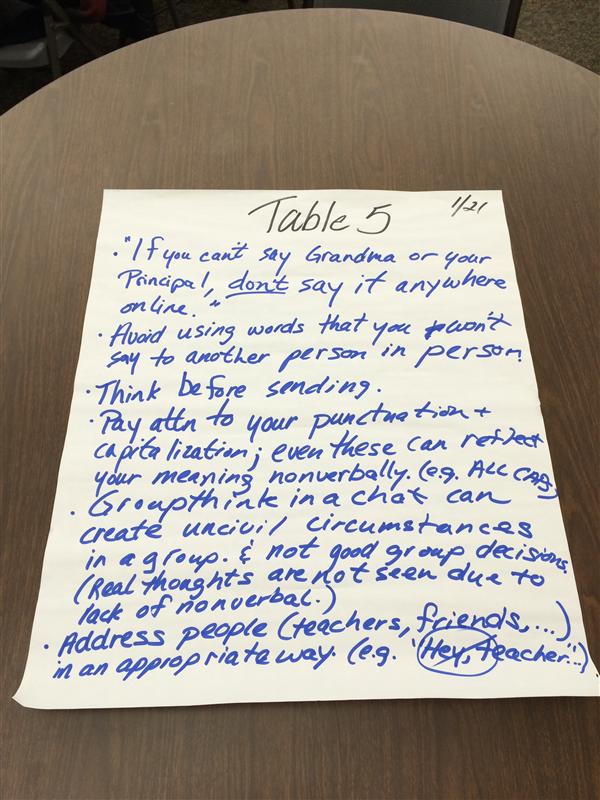 Table 5
1/21
• "If you can't say Grandma or your
Principal, don't say it anywhere
online."
• Avoid using words that you won't
say to another person in person.
• Think before sending.
• Pay attn to your punctuation +
capitalization; even these can reflect
your meaning nonverbally. (e.g. ALL CAPS)
• Groupthink in a chat can
create uncivil circumstances
in a group. & not good group decisions.
(Real thoughts are not seen due to
lack of nonverbal.)
• Address people (teachers, friends,...)
in an appropriate way. (e.g. "Hey, teacher"...)